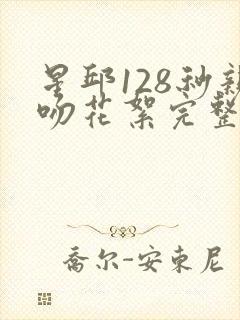 星邱128秒亲
吻花絮完整
乔尔-安東尼